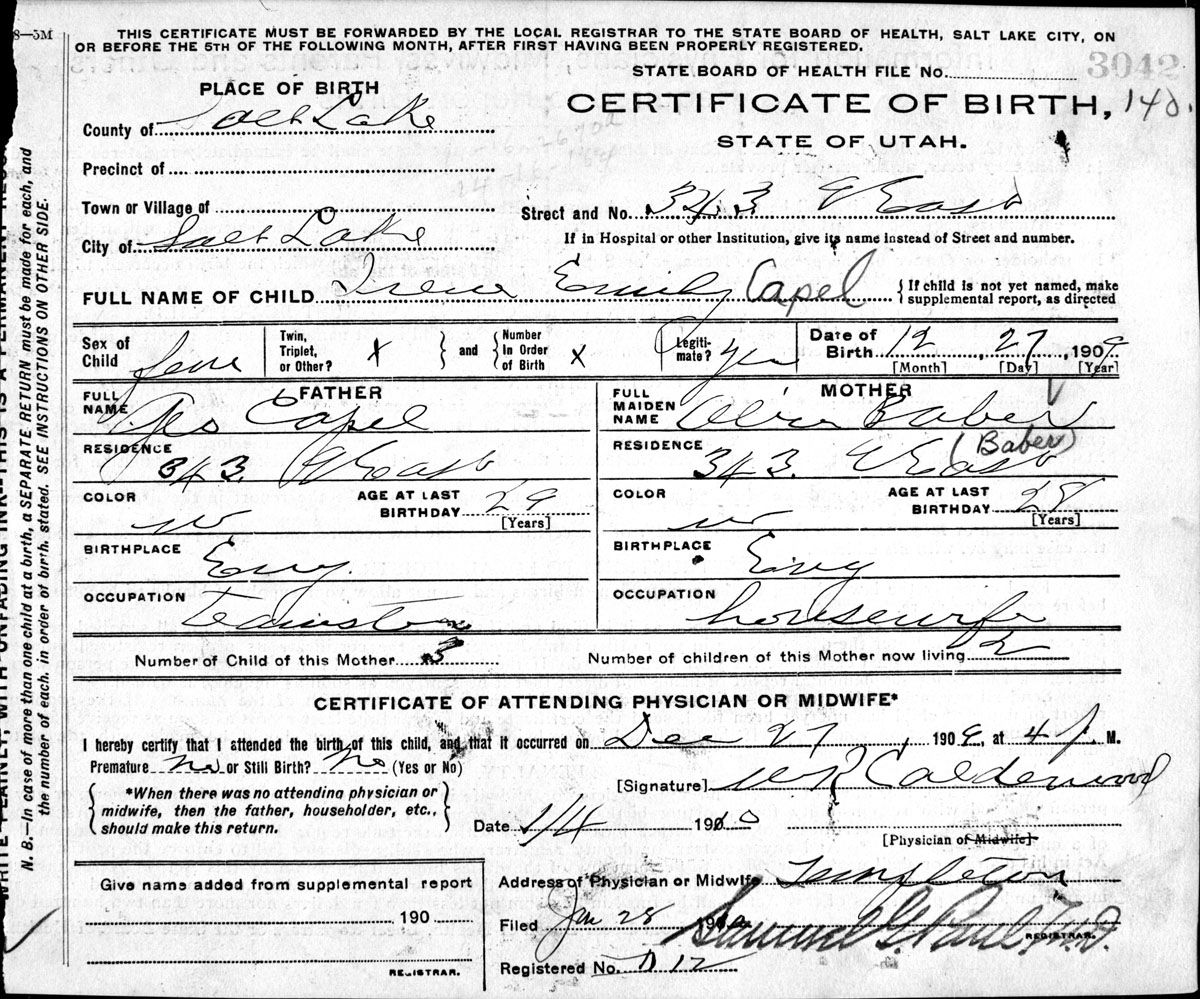 8—5M
THIS CERTIFICATE MUST BE FORWARDED BY THE LOCAL REGISTRAR TO THE STATE BOARD OF HEALTH, SALT LAKE CITY, ON
OR BEFORE THE 5TH OF THE FOLLOWING MONTH, AFTER FIRST HAVING BEEN PROPERLY REGISTERED.
STATE BOARD OF HEALTH FILE No. 3042
PLACE OF BIRTH
CERTIFICATE OF BIRTH, 140.
STATE OF UTAH.
County of Salt Lake
Precinct of
Town or Village of
Street and No. 343 East
City of Salt Lake
If in Hospital or other Institution, give its name instead of Street and number.
FULL NAME OF CHILD Irene Emily Capel
If child is not yet named, make
supplemental report, as directed
Sex of Child Fem
Twin, Triplet, or Other? X and Number In Order of Birth X
Legitimate? yes
Date of Birth 12 27, 1909
[Month] [Day] [Year]
FATHER
FULL NAME Geo Capel
RESIDENCE 343 East
COLOR W
AGE AT LAST BIRTHDAY 29
[Years]
BIRTHPLACE Eng.
OCCUPATION teamster
MOTHER
FULL MAIDEN NAME Baber
(Baber)
RESIDENCE 343 East
COLOR W
AGE AT LAST BIRTHDAY 28
[Years]
BIRTHPLACE Eng
OCCUPATION housewife
Number of Child of this Mother 3
Number of children of this Mother now living 2
CERTIFICATE OF ATTENDING PHYSICIAN OR MIDWIFE*
I hereby certify that I attended the birth of this child, and that it occurred on Dec 27, 1909, at 4 P. M.
Premature no or Still Birth? no (Yes or No)
*When there was no attending physician or
midwife, then the father, householder, etc.,
should make this return.
[Signature] Calderwood
Date 1/4 1910
[Physician or Midwife]
Give name added from supplemental report
190
REGISTRAR.
Address of Physician or Midwife Templeton
Filed Jan 28 1910 Samuel G Paul M.D.
REGISTRAR.
Registered No. D 12
WRITE PLAINLY, WITH UNFADING INK—THIS IS A PERMANENT RECO
N. B.—In case of more than one child at a birth, a SEPARATE RETURN must be made for each, and
the number of each, in order of birth, stated. SEE INSTRUCTIONS ON OTHER SIDE.